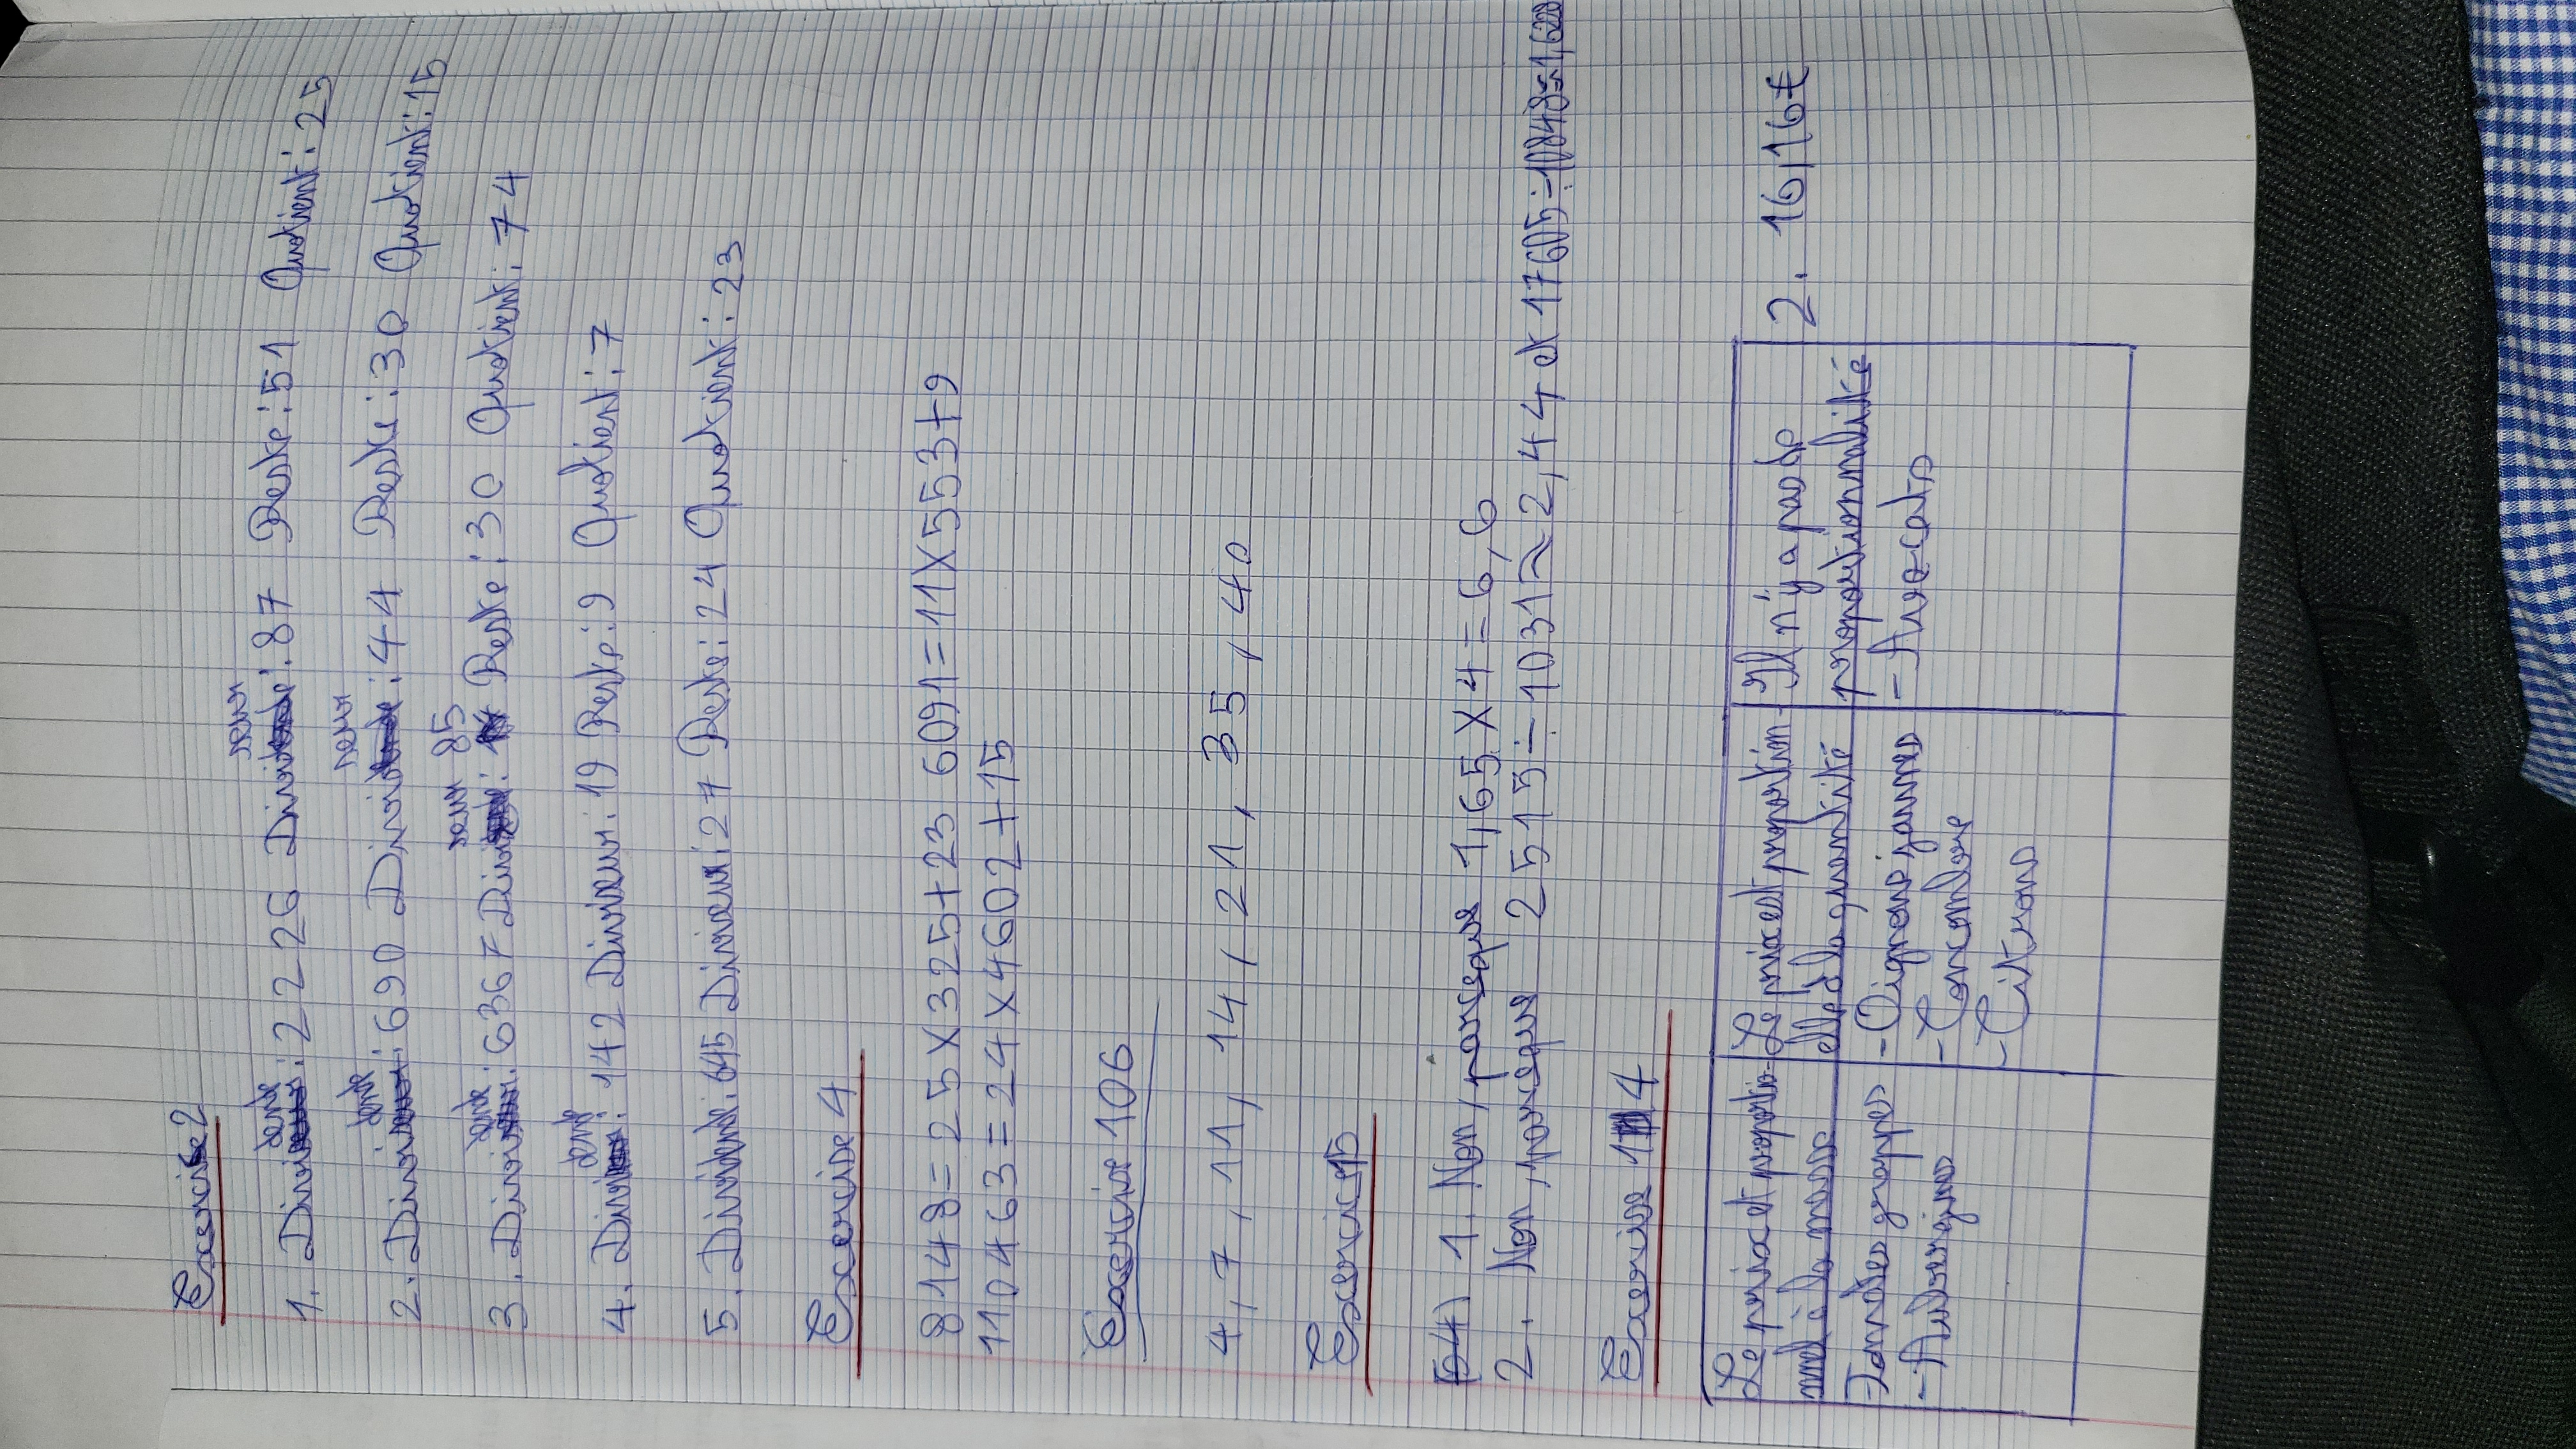 Exercice 2
1. Dividende : 2226 Diviseur : 87 Reste : 51 Quotient : 25
2. Dividende : 690 Diviseur : 44 Reste : 30 Quotient : 15
3. Dividende : 6367 Diviseur 85 Reste : 30 Quotient : 74
4. Dividende : 142 Diviseur : 19 Reste : 9 Quotient : 7
5. Dividende : 645 Diviseur : 27 Reste : 24 Quotient : 23
Exercice 4
8148 = 25 X 325 + 23 6091 = 11 X 553 + 9
110463 = 24 X 4602 + 15
Exercice 106
4, 7, 11, 14, 21, 35, 40
Exercice 15
1. Non, parceque 1,65 X 4 = 6,6
2. Non, parceque 2515 ÷ 1031 ≈ 2,44 et 17605 ÷ 10848 ≈ 1,622
Exercice 14
Le prix est proportio-
nnel à la masse
-Tomates grappes
- Aubergines
Le prix est proportion-
elle à la quantité
- Oignons jaunes
- Concombre
- Citrons
Il n'y a pas de
proportionnalité
- Avocats
2. 16,16€